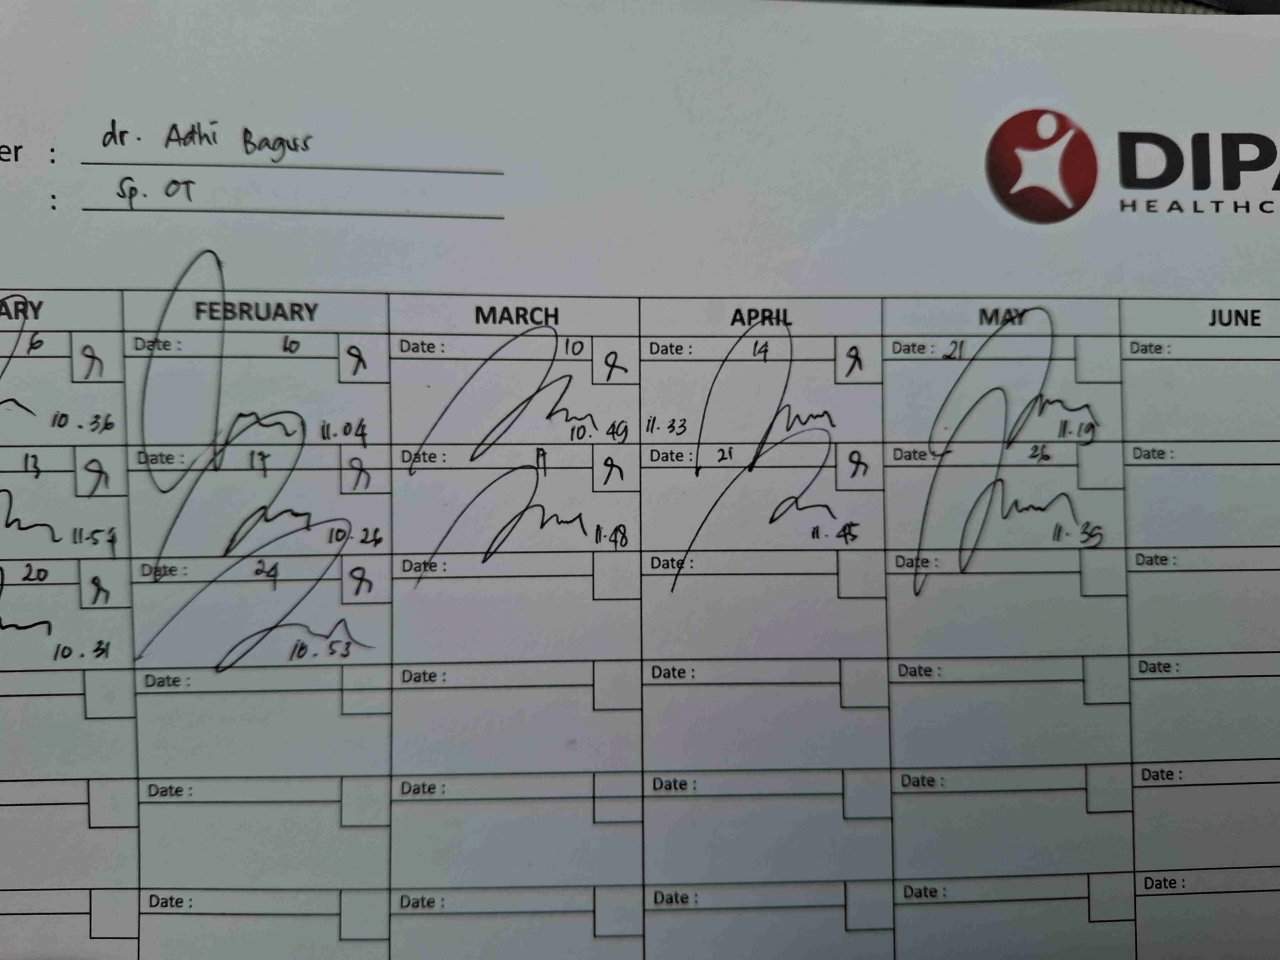 er : dr. Adhi Bagus
: Sp. OT
DIPA
HEALTHC
ARY FEBRUARY MARCH APRIL MAY JUNE
6 Date : 10 Date : 10 Date : 14 Date : 21 Date :
10.36 11.04 10.49 11.33 11.19
13 Date : 17 Date : Date : 21 Date : 26 Date :
11.54 10.26 11.48 11.45 11.35
20 Date : 24 Date : Date : Date : Date :
10.31 10.53
Date : Date : Date : Date : Date :
Date : Date : Date : Date : Date :
Date : Date : Date : Date : Date :